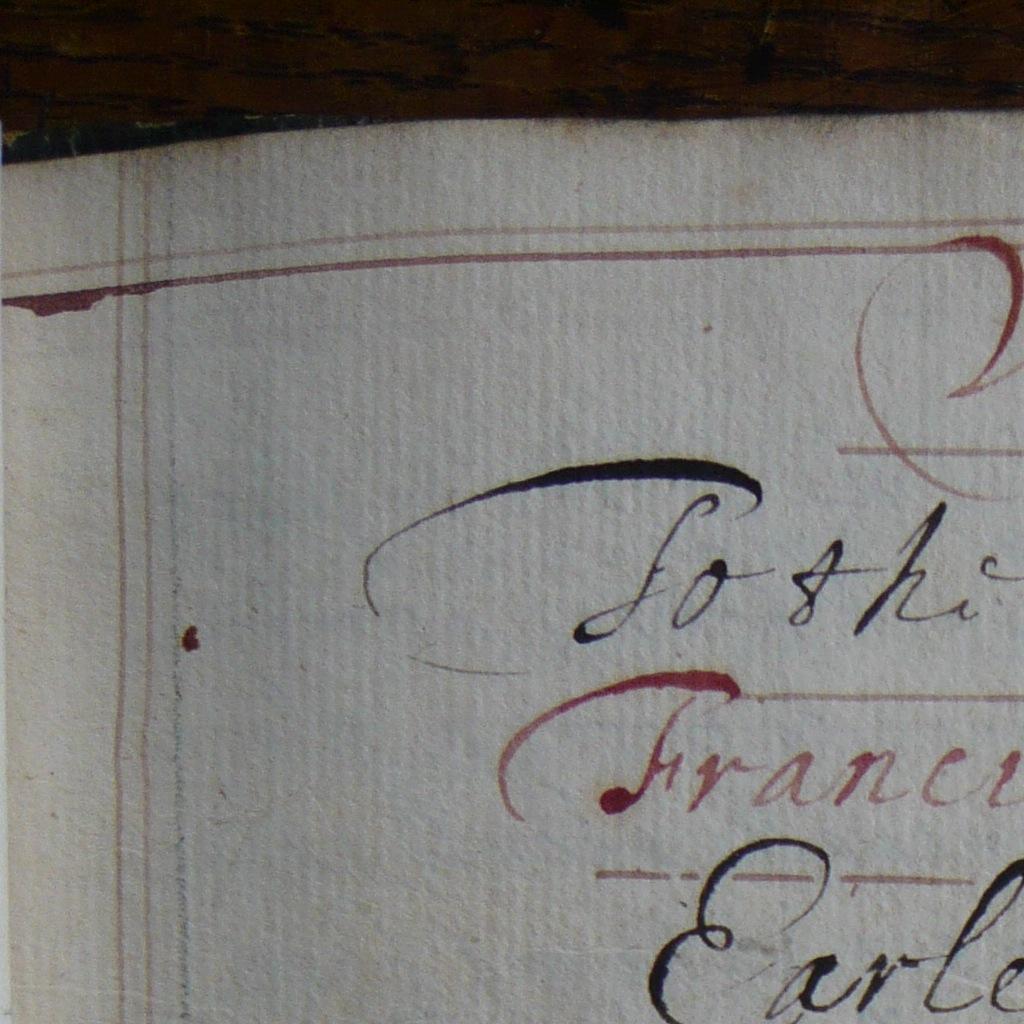 To the
Franci
Earle